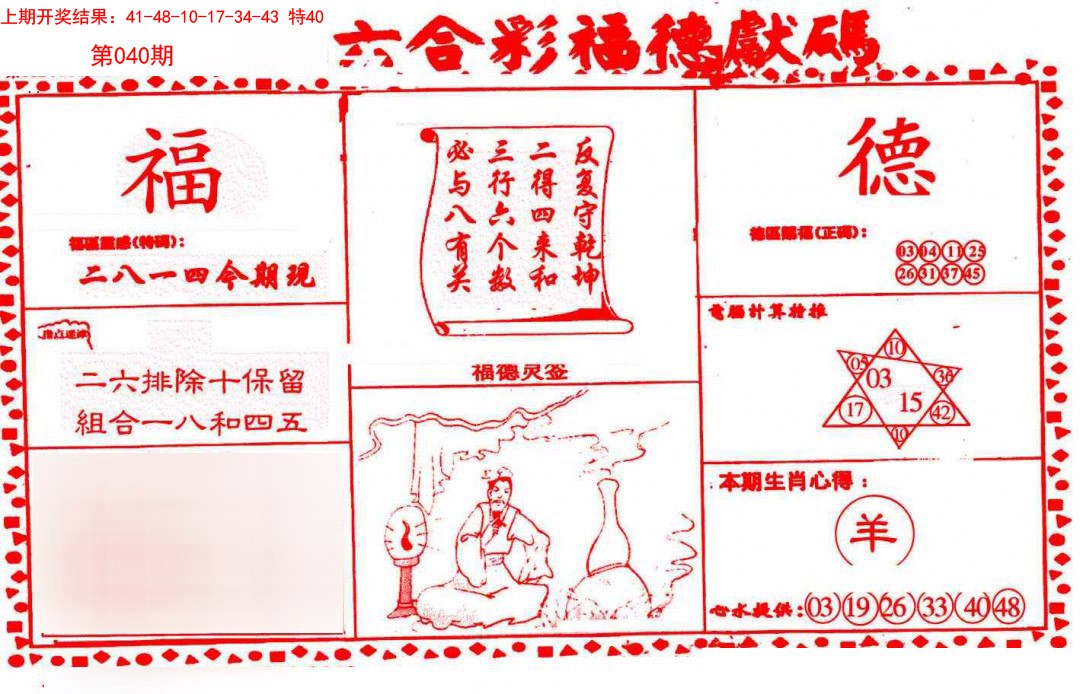 上期开奖结果：41-48-10-17-34-43 特40
第040期
六合彩福德獻碼
福
福區靈感(特碼)：
二八一四今期現
指点迷津
二六排除十保留
組合一八和四五
反复守乾坤
二得四来和
三行六个数
必与八有关
福德灵签
德
德區賜福(正碼)：
03 04 11 25
26 31 37 45
電腦計算拾推
10
05 03 36
17 15 42
10
本期生肖心得：
羊
心水提供：03 19 26 33 40 48